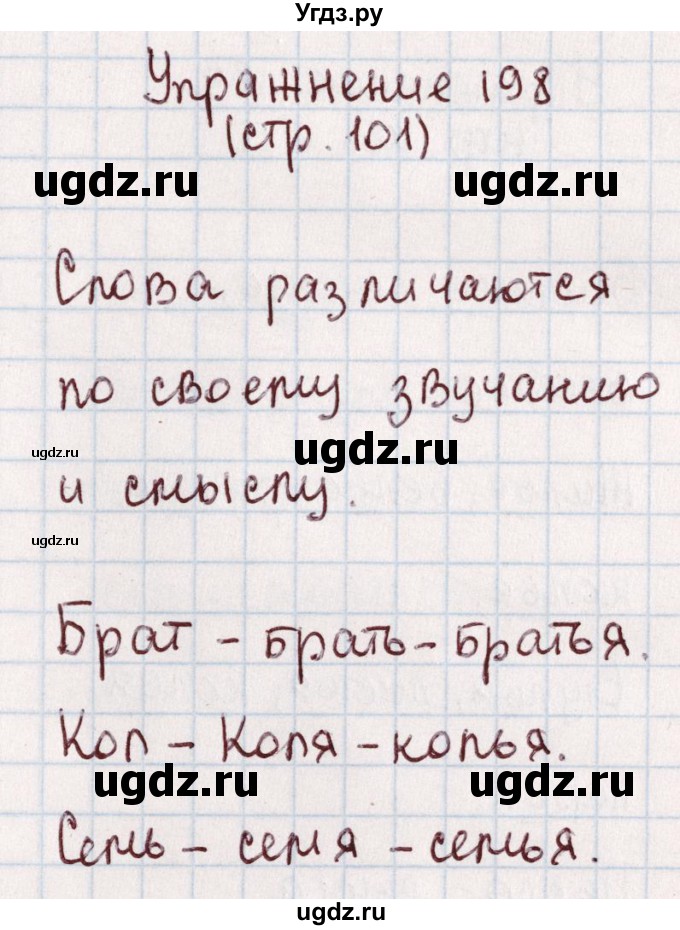 Угдз.ру
Упражнение 198
(стр. 101)
ugdz.ru ugdz.ru
Слова различаются
по своему звучанию
ugdz.ru ugdz.ru
и смыслу.
ugdz.ru
Брат – брать – братья.
Кол – Коля – колья.
ugdz.ru ugdz.ru
Семь – семя – семья.
ugdz.ru